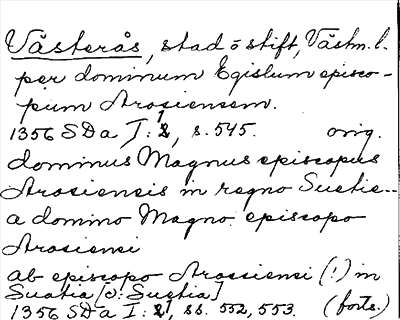 Västerås, stad o stift, Västm. l.
per dominum Egislum episco-
pum Arosiensem.
1356 SDa I:1, s. 545. orig.
dominus Magnus episcopus
Arosiensis in regno Suetie--
a domino Magno episcopo
Arosiensi
ab episcopo Arossiensi (!) in
Suatia [ɔ: Suetia]
1356 SDa I:1, ss. 552, 553. (forts.)